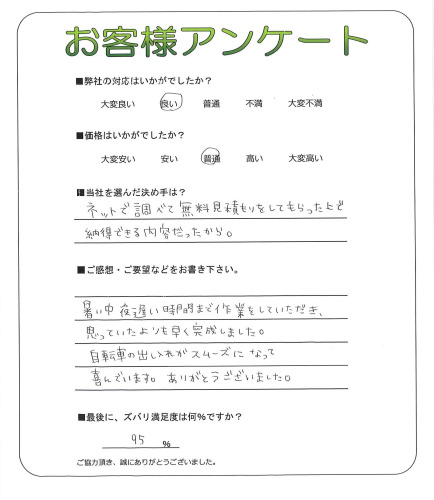 お客様アンケート
■弊社の対応はいかがでしたか？
大変良い 良い 普通 不満 大変不満
■価格はいかがでしたか？
大変安い 安い 普通 高い 大変高い
■当社を選んだ決め手は？
ネットで調べて無料見積もりをしてもらった上で
納得できる内容だったから。
■ご感想・ご要望などをお書き下さい。
暑い中夜遅い時間まで作業をしていただき、
思っていたよりも早く完成しました。
自転車の出し入れがスムーズになって
喜んでいます。ありがとうございました。
■最後に、ズバリ満足度は何％ですか？
95 ％
ご協力頂き、誠にありがとうございました。